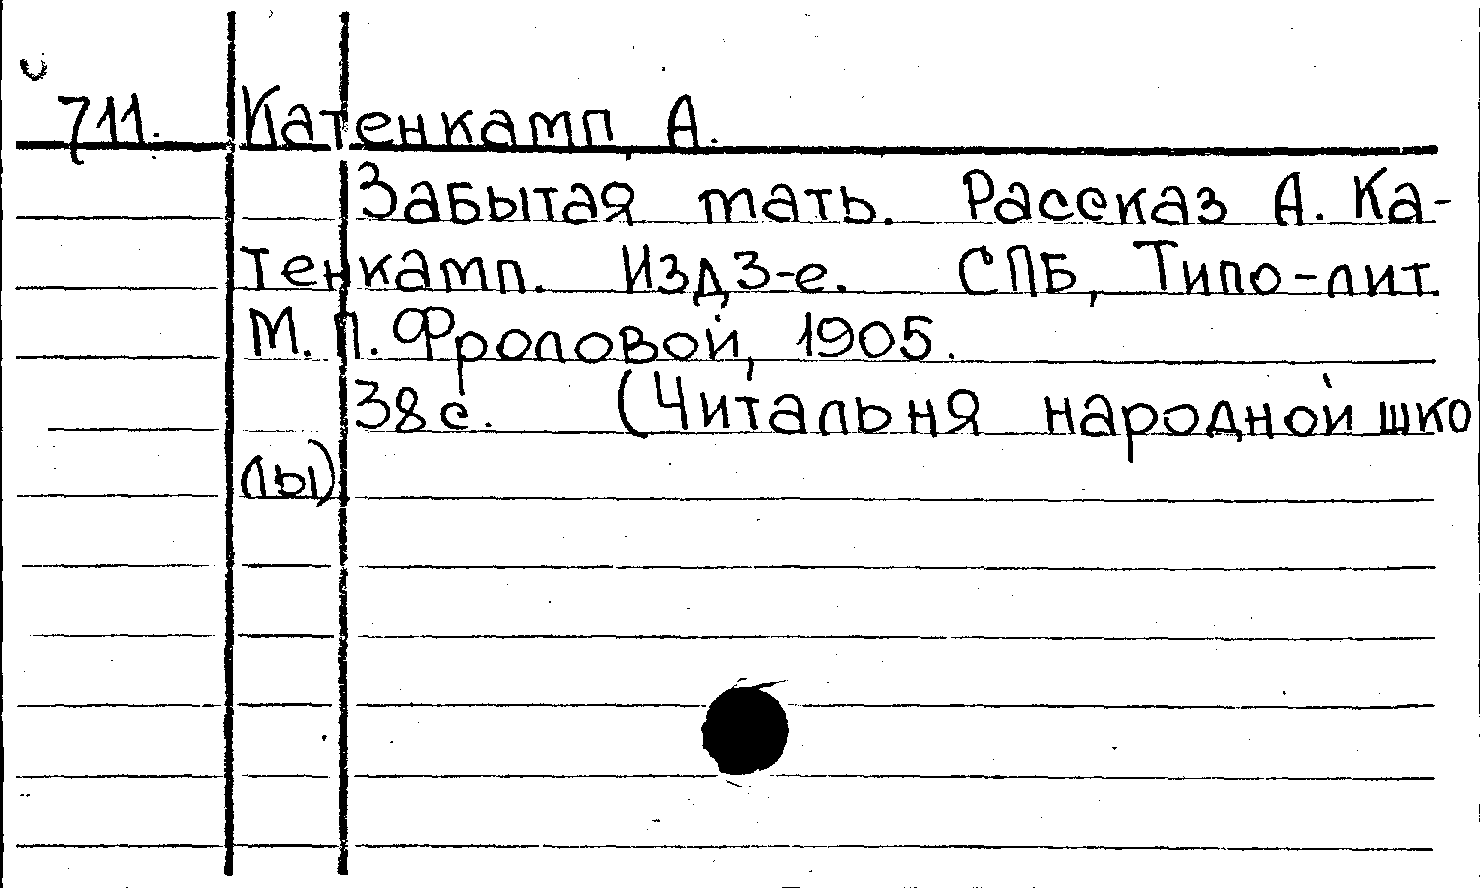 711. Катенкамп, А.
Забытая мать. Рассказ А. Ка-
тенкамп. Изд 3-е. СПБ, Типо-лит.
М. П. Фроловой, 1905.
38 с. (Читальня народной шко
лы)